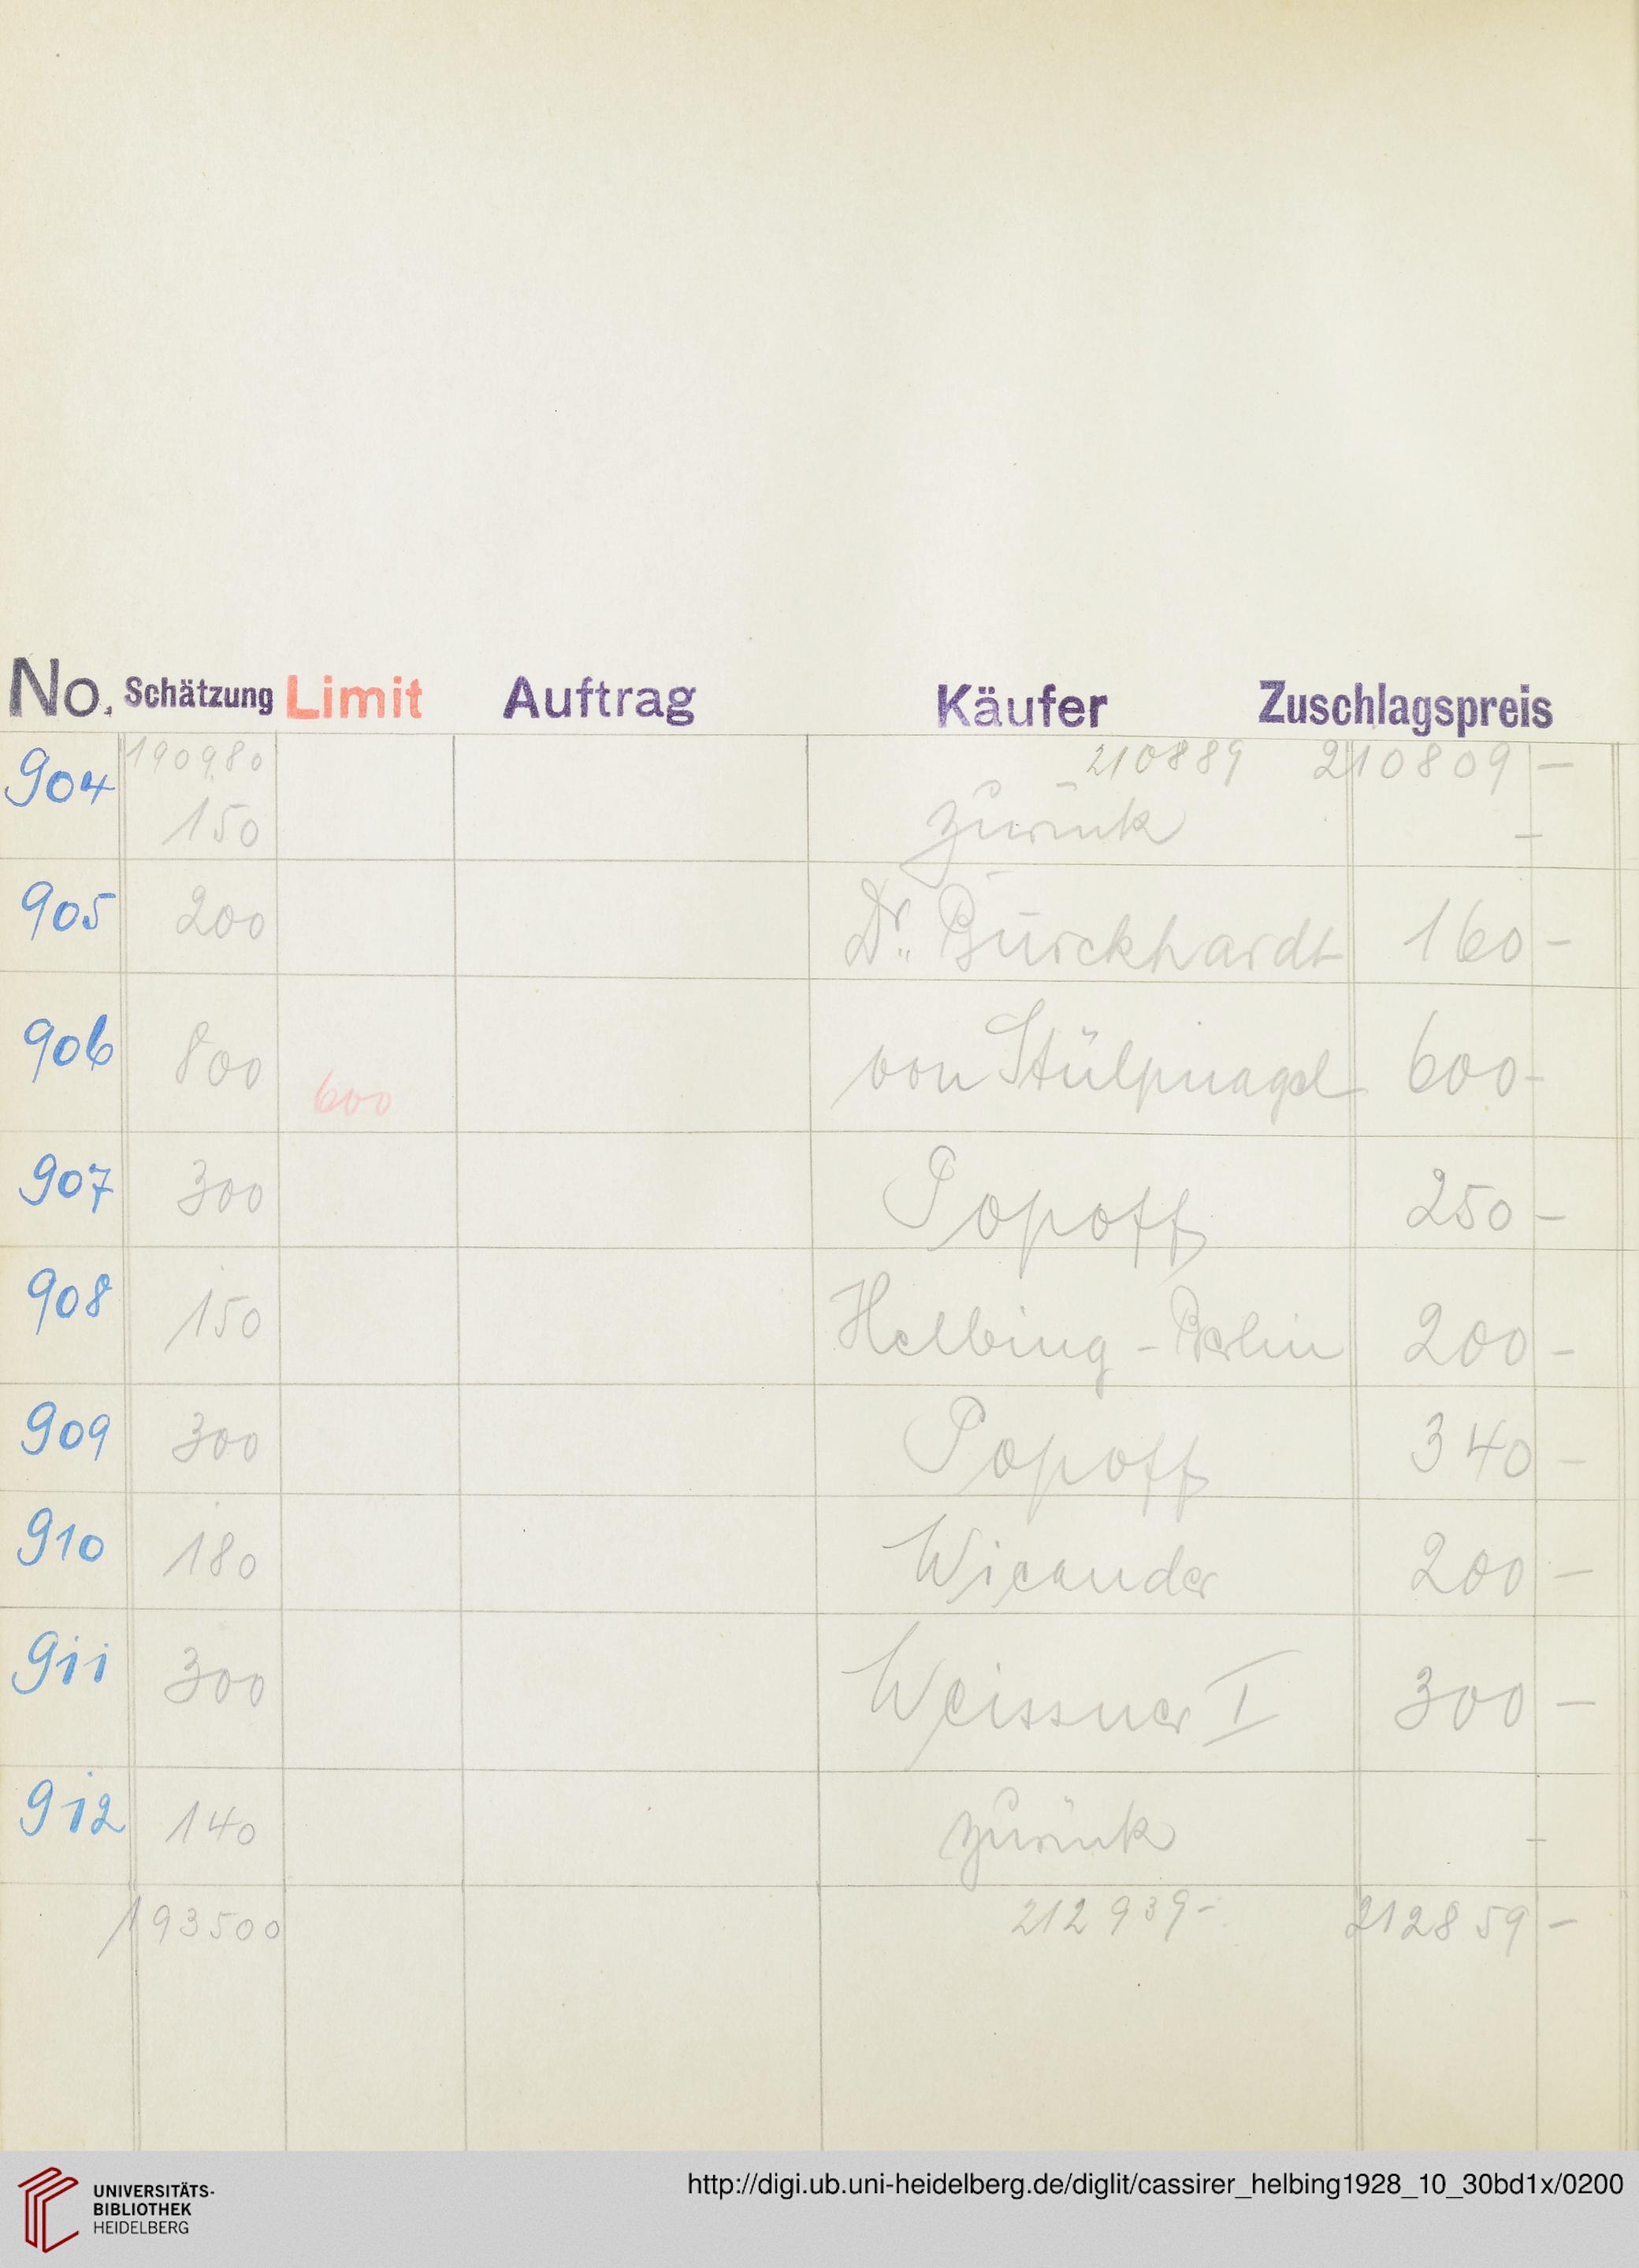 No. Schätzung Limit Auftrag Käufer Zuschlagspreis
190980 210889 210809 –
904 150 zurück –
905 200 Dr. Burckhardt 160 –
906 800 600 von Stülpnagel 600 –
907 300 Popoff 250 –
908 150 Helbing - Berlin 200 –
909 300 Popoff 340 –
910 180 Wicander 200 –
911 300 Weissner I 300 –
912 140 zurück –
193500 212939 – 212859 –
UNIVERSITÄTS-
BIBLIOTHEK
HEIDELBERG
http://digi.ub.uni-heidelberg.de/diglit/cassirer_helbing1928_10_30bd1x/0200